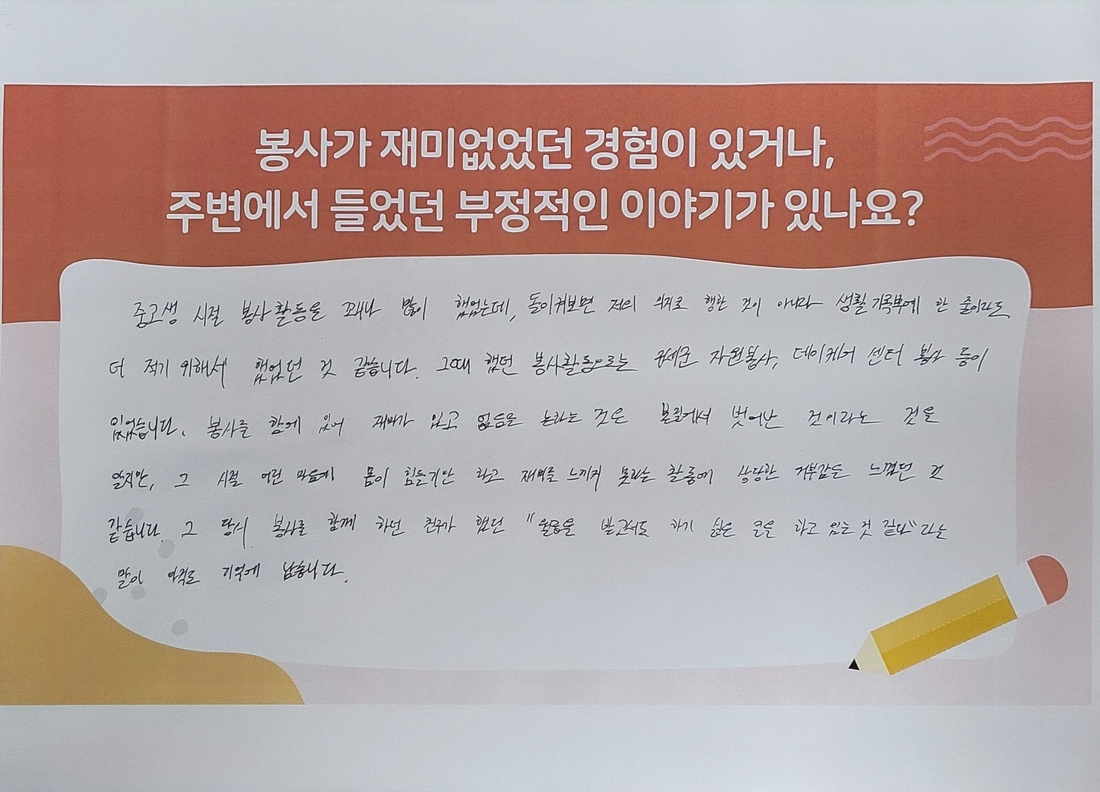 봉사가 재미없었던 경험이 있거나,
주변에서 들었던 부정적인 이야기가 있나요?
중고생 시절 봉사활동을 꽤나 많이 했었는데, 돌이켜보면 저의 의지로 행한 것이 아니라 생활기록부에 한 줄이라도
더 적기 위해서 했었던 것 같습니다. 그때 했던 봉사활동으로는 구세군 자원봉사, 데이케어 센터 봉사 등이
있었습니다. 봉사를 함에 있어 재미가 있고 없음을 논하는 것은 본질에서 벗어난 것이라는 것을
알지만, 그 시절 어린 마음에 몸이 힘들기만 하고 재미를 느끼지 못하는 활동에 상당한 거부감을 느꼈던 것
같습니다. 그 당시 봉사를 함께 하던 친구가 했던 "월급을 받고서도 하기 싫은 일을 하고 있는 것 같다"라는
말이 아직도 기억에 남습니다.